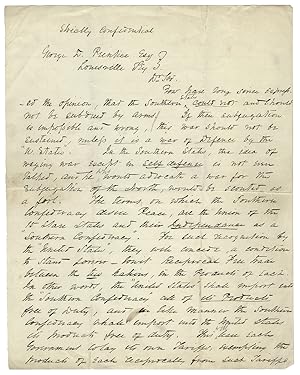 Strictly Confidential
George D. Prentice Esq
Louisville Ky
Dr Sir.
You have long since express
-ed the opinion, that the Southern States could not and should
not be subdued by arms. If then subjugation
is impossible and wrong, this war should not be
sustained, unless it is a war of Defence by the
U States. In the Southern States, the idea of
waging war except in self defence is not even
, and he who would advocate a war for the
subjugation of the North, would be counted as
a fool. The terms on which the Southern
Confederacy desires Peace, are the Union of the
15 Slave States and their Independence as a
"Southern Confederacy." For such recognition by
the United States, they will concede a condition
to stand forever - that Reciprocal Free trade
between the two Nations, in the Products of each
In other words, the United States shall import into
the Southern Confederacy all of its Products
free of Duty, and in like manner the Southern
Confederacy shall import into the United States
its products free of duty. This leaves each
Government to lay its own Tariffs exempting the
Products of each reciprocally from such Tariffs